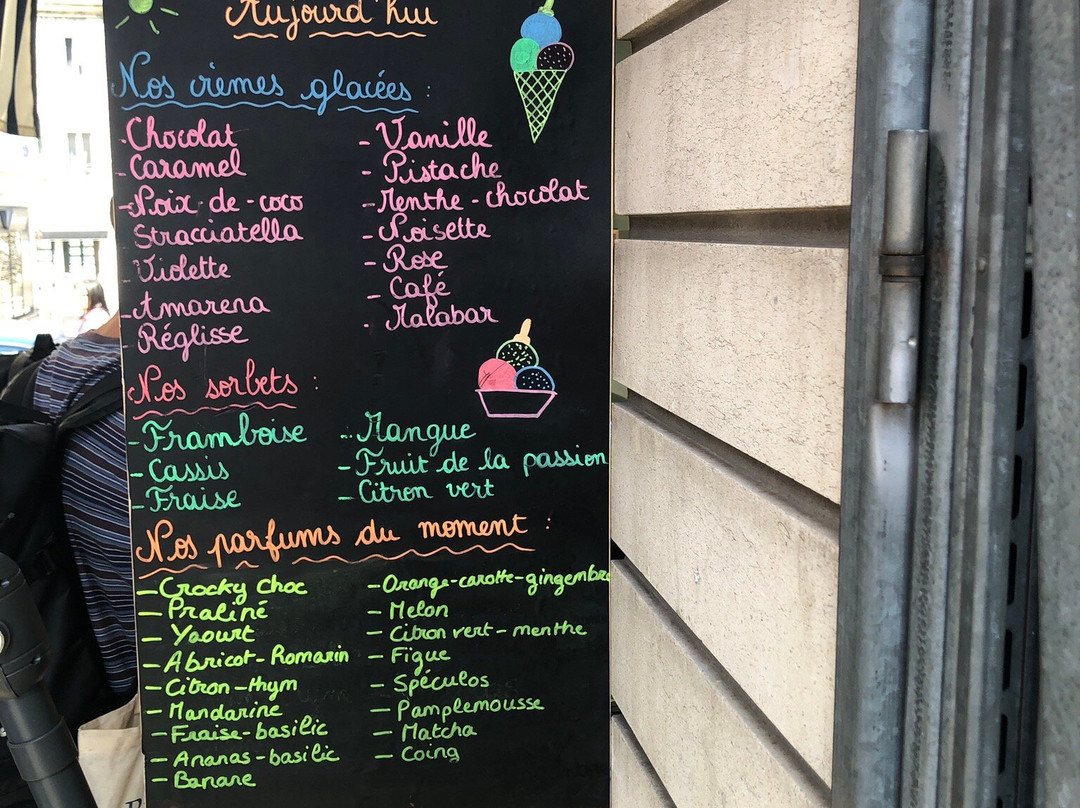 Aujourd'hui
Nos crèmes glacées :
- Chocolat
- Caramel
- Noix-de-coco
Stracciatella
Violette
- Amarena
- Réglisse
- Vanille
- Pistache
- Menthe-chocolat
- Noisette
- Rose
- Café
- Malabar
Nos sorbets :
- Framboise
- Cassis
- Fraise
- Mangue
- Fruit de la passion
- Citron vert
Nos parfums du moment :
- Crocky choc
- Praliné
- Yaourt
- Abricot-Romarin
- Citron-thym
- Mandarine
- Fraise-basilic
- Ananas-basilic
- Banane
- Orange-carotte-gingembre
- Melon
- Citron vert-menthe
- Figue
- Spéculos
- Pamplemousse
- Matcha
- Coing